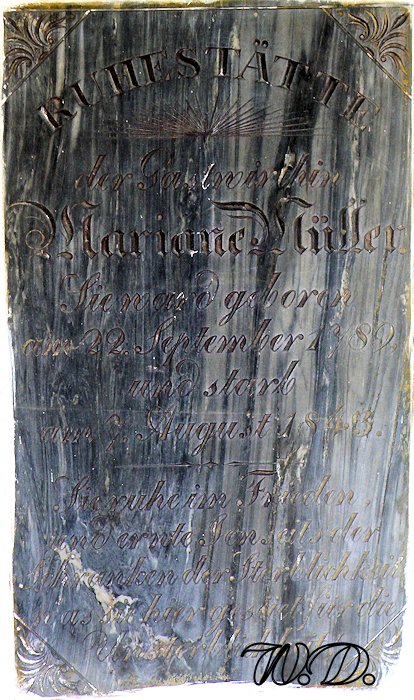 RUHESTÄTTE
der Gastwirthin
Mariane Müller.
Sie ward geboren
am 22. September 1789,
und starb
am 7. August 1843.
Sie ruhe im Frieden,
und ernte Jenseits der
Schranken der Sterblichkeit
was sie hier gesäet für die
Unsterblichkeit
W.D.